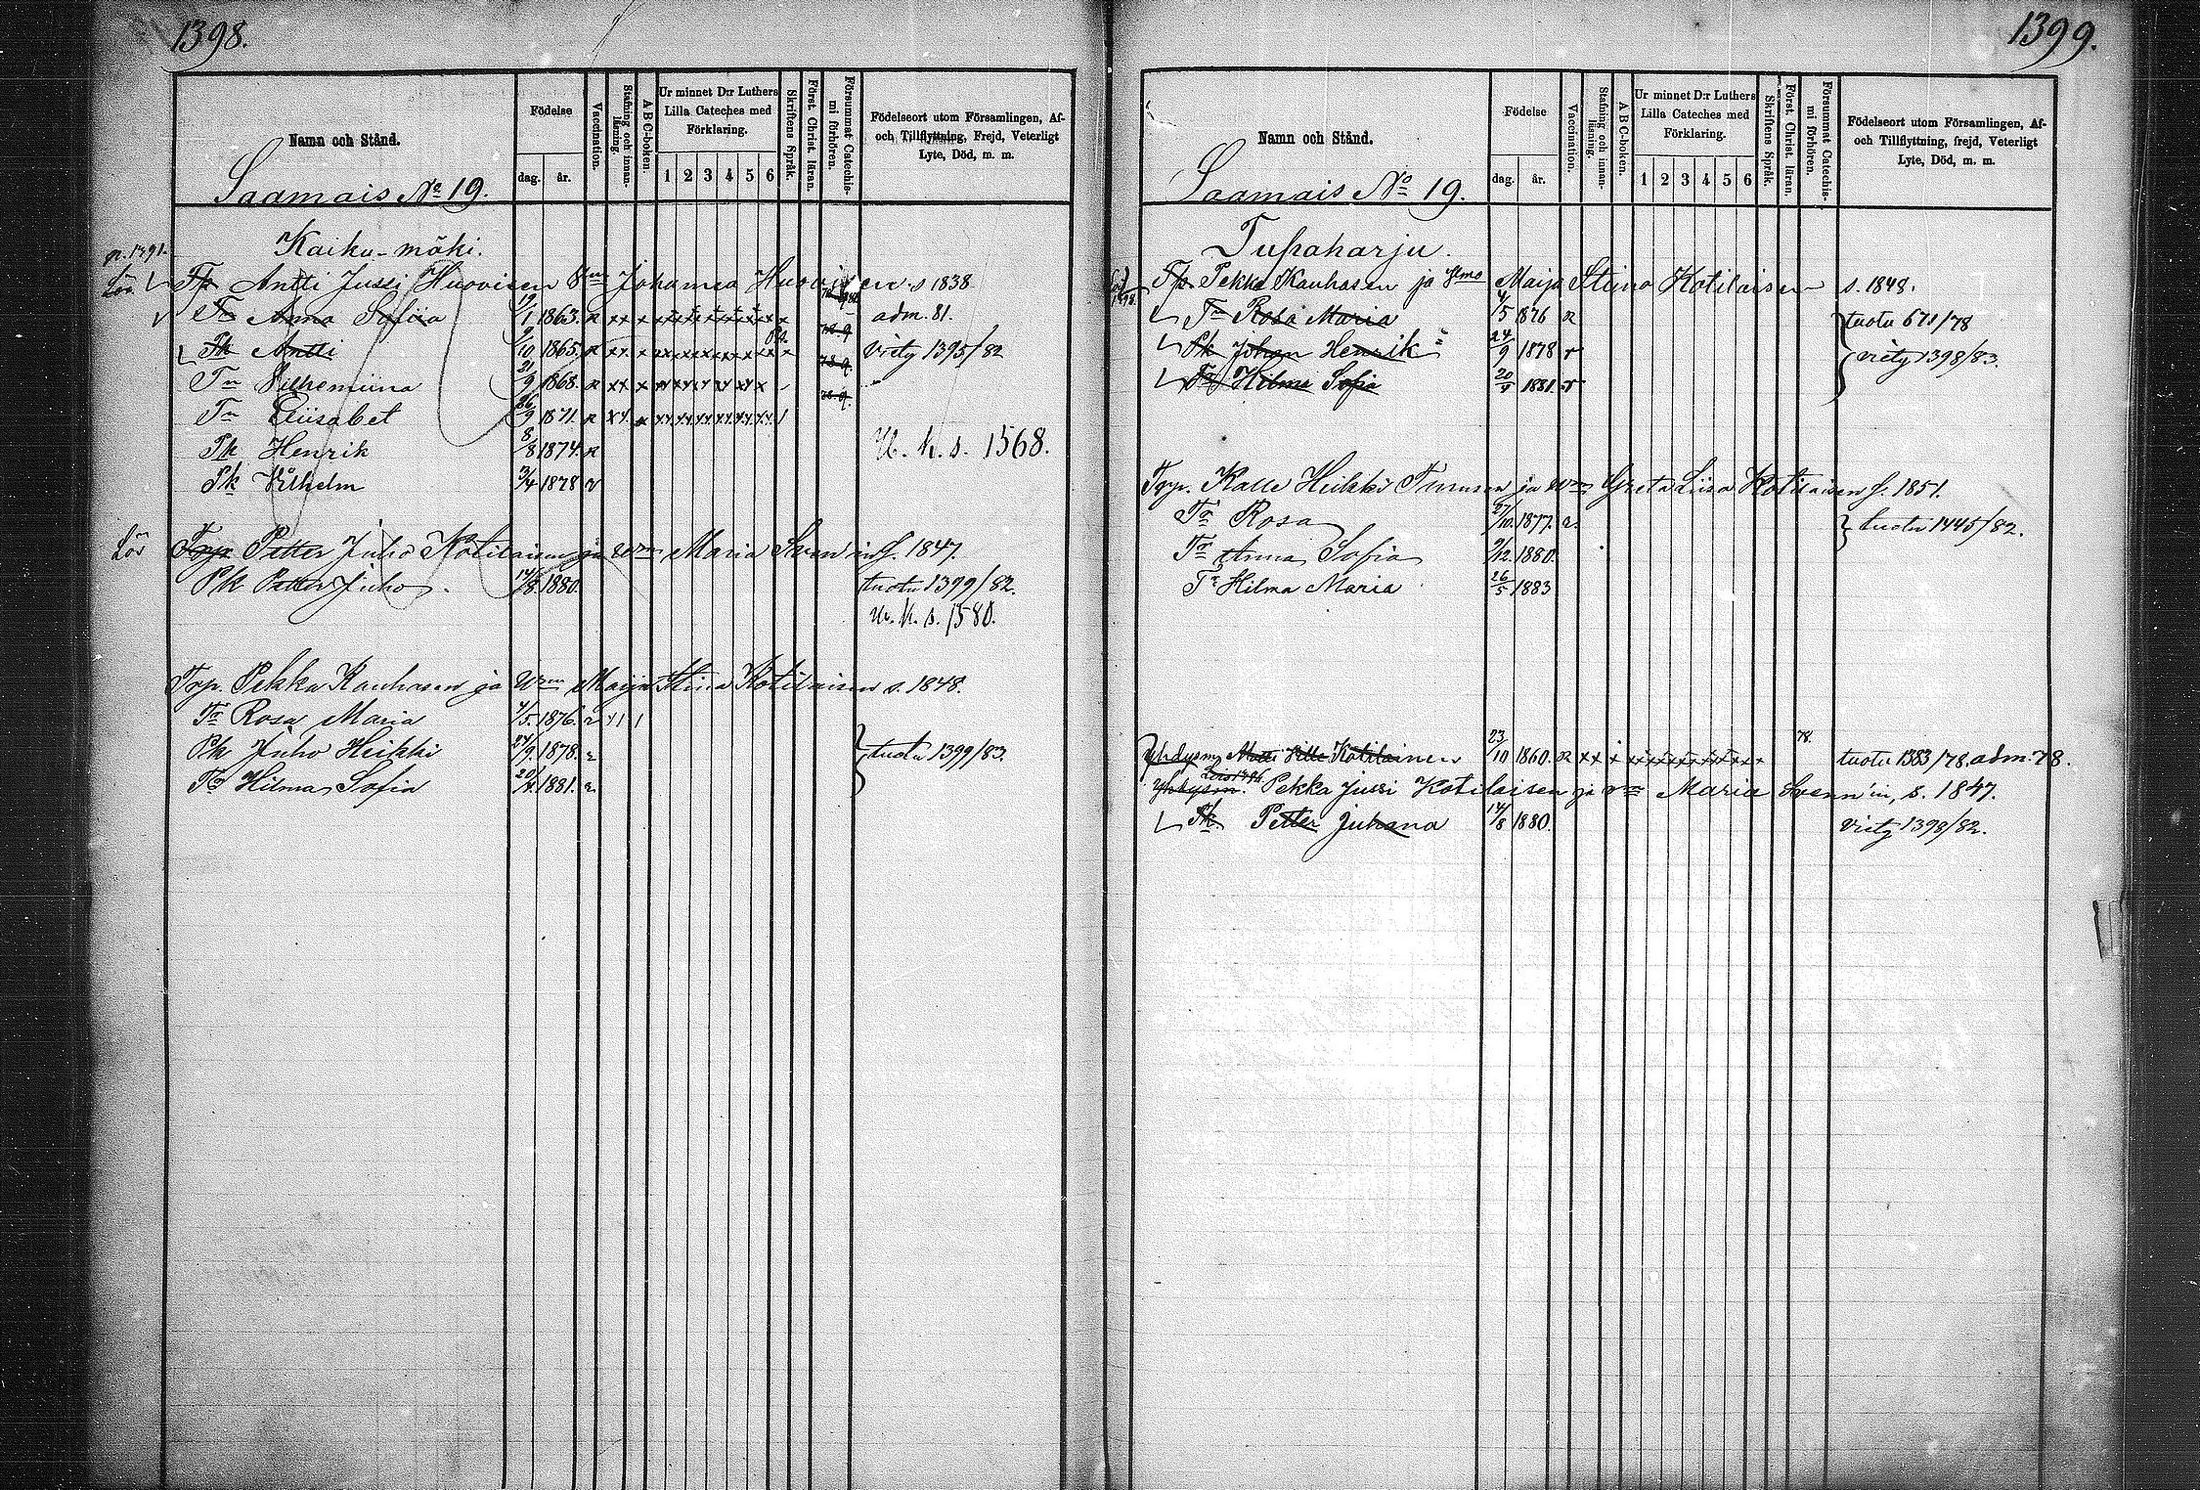 1398.
Namn och Stånd.
Födelse
dag.
år.
Vaccination.
Stafning och innan-läsning.
A B C-boken.
Ur minnet D:r Luthers
Lilla Cateches med
Förklaring.
1 2 3 4 5 6
Skriftens Språk.
Först. Christ. läran.
Försummat Catechis-
mi förhören.
Födelseort utom Församlingen, Af-
och Tillflyttning, Frejd, Veterligt
Lyte, Död, m. m.
Saamais No 19.
Kaiku-mäki.
p. 1391.
Lös Tp Antti Jussi Huovisen Johanna Huovisen s 1838
Tr Anna Sofiia 19/1 1863. adm. 81.
Pk Antti 9/10 1865. viety 1395/82
Tr Vilhemiina 21/9 1868.
Tr Eliisabet 26/9 1871.
Pk Henrik 8/8 1874. U. k. s. 1568.
Pk Vilhelm 3/4 1878
Lös Torp. Petter Juho Kotilaisen ja Maria Svenn in s. 1847.
Pk Petter Juho. 14/8. 1880. tuotu 1399/82.
U. k. s. 1580.
Torp. Pekka Kauhasen ja Maija Stina Kotilaisen s. 1848.
Tr Rosa Maria 4/5. 1876.
Pk Juho Heikki 24/9. 1878. tuotu 1399/83.
Tr Hilma Sofia 20/4. 1881.
1399.
Namn och Stånd.
Födelse
dag.
år.
Vaccination.
Stafning och innan-läsning.
A B C-boken.
Ur minnet D:r Luthers
Lilla Cateches med
Förklaring.
1 2 3 4 5 6
Skriftens Språk.
Först. Christ. läran.
Försummat Catechis-
mi förhören.
Födelseort utom Församlingen, Af-
och Tillflyttning, frejd, Veterligt
Lyte, Död, m. m.
Saamais No 19.
Tupaharju.
1398. Tp. Pekka Kauhasen ja Maija Stiina Kotilaisen s. 1848.
Tr Rosa Maria 4/5 1876 tuotu 671/78
Pk Johan Henrik 24/9 1878 viety 1398/83.
Tr Hilma Sofia 20/4 1881.
Torp. Kalle Heikki Turusen ja Greta Liisa Kotilaisen s. 1851.
Tr Rosa 27/10. 1877. tuotu 1445/82.
Tr Anna Sofia 9/12. 1880.
Tr Hilma Maria 26/5 1883
Yhdysm. Matti Ville Kotilainen 23/10 1860. 78. tuotu 1383/78. adm. 78.
Yhdysm. Pekka Jussi Kotilaisen ja Maria Svenn'in, s. 1847.
Pk. Petter Juhana 14/8 1880. viety 1398/82.